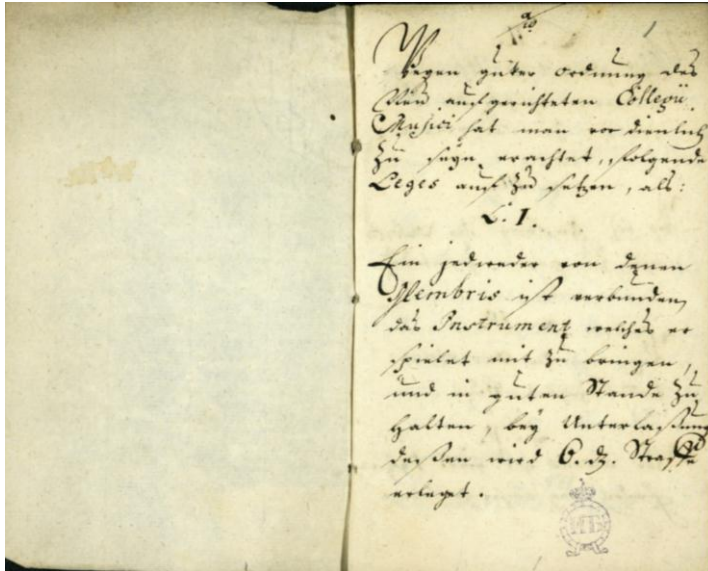 1
Wegen guter Ordnung des
Neu aufgerichteten Collegii
Musici hat man vor dienlich
zu seyn erachtet, folgende
Leges auf zu setzen, als:
L. 1.
Ein jedweder von denen
Membris ist verbunden,
das Instrument welches er
spielet mit zu bringen,
und in guten Stande zu
halten, bey Unterlaßung
deßen wird 6. Straffe
erleget.